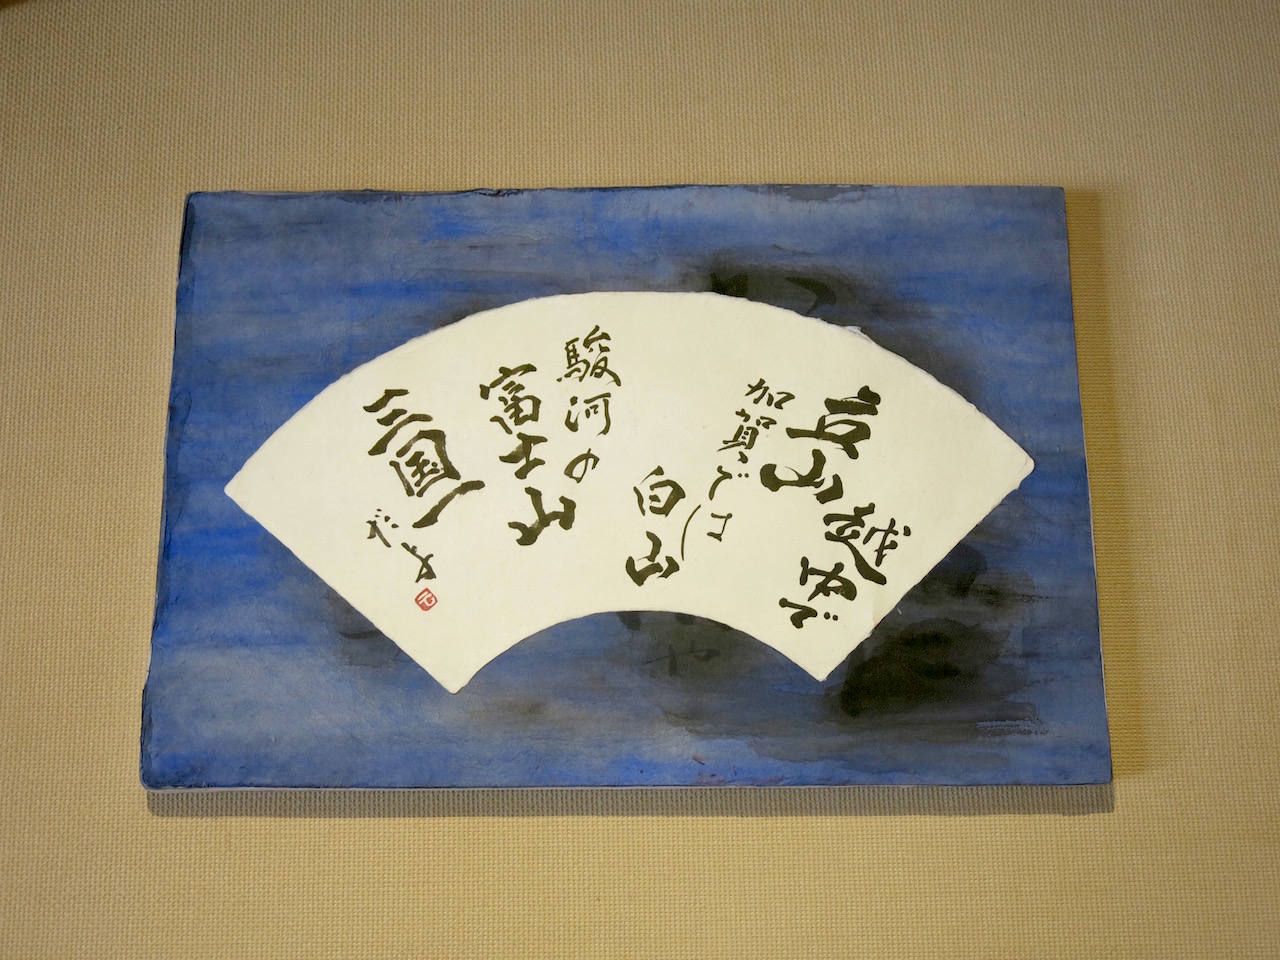 越中で
立山
加賀では
白山
駿河の
富士山
三国一
だよ